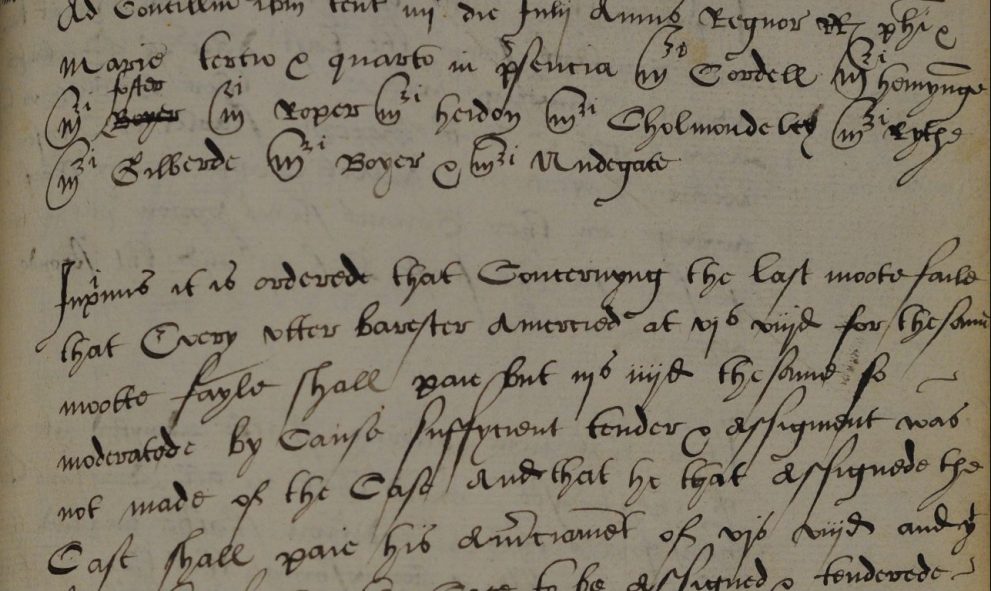 Ad Concilium ibm tent iiij die Julij Annis Regnor RR phi &
Marie tercio & quarto in psencia Mri Cordell Mri hemynge
foster
Mri Boyer Mri Roper Mri heidon Mri Cholmondeley Mri Rythe
Mri Gilberde Mri Boyer & Mri Undegate
Inprimis it is orderede that Concernyng the last moote faile
that Every utter barester Amercied at vjs viijd for thesame
mootte fayle shall paie but iijs iiijd thesame so
moderatede by Cause suffycient tender & Assigment was
not made of the Case And that he that Assignede the
Case shall paie his Amciamet of vjs viijd and yt
to be Assigned & tenderede